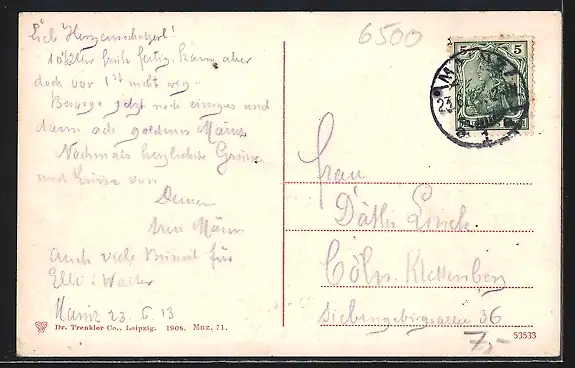 Lieb Herzensschatzerl!
10 Uhr früh fertig. kann aber
doch vor 1 St nicht weg.
Besorge jetzt noch einiges und
dann ade goldenes Mainz
Nochmals herzlichste Grüsse
und Küsse von
Deinem
treu Männ
Auch viele
für
Elli i Walter
Mainz 23. 6. 13
Dr. Trenkler Co., Leipzig. 1908. Mnz. 71.
6500
5 5
MAINZ
23.6
1
Frau
Cöln. Klettenberg
Siebengebirgsallee 36
7,-
53533